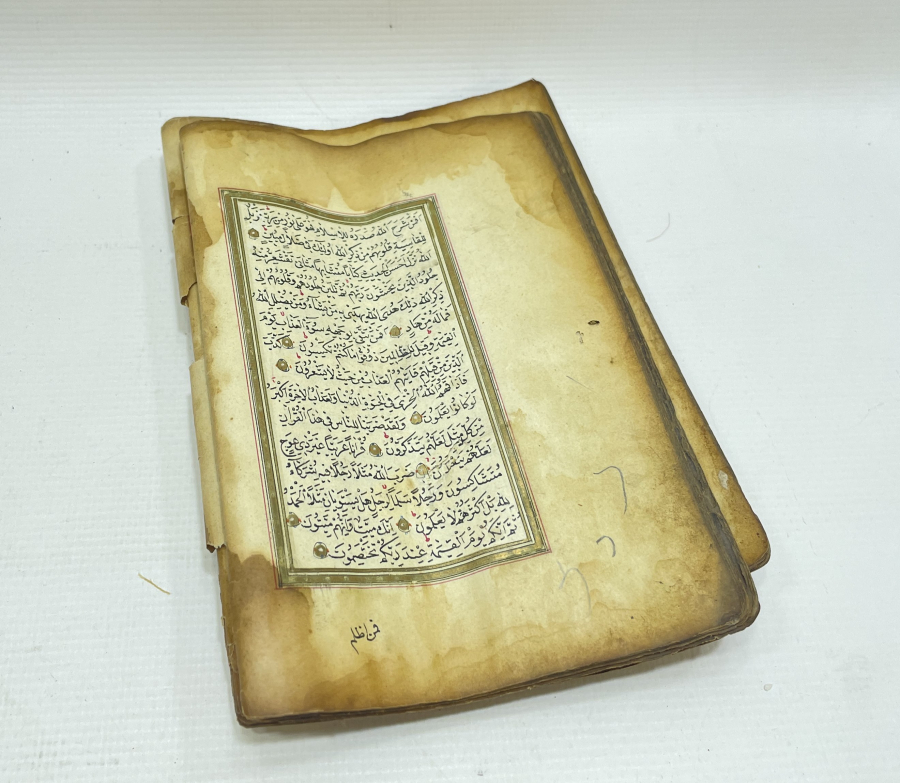 اَفَمَنْ شَرَحَ اللهُ صَدْرَهُ لِلْاِسْلَامِ فَهُوَ عَلٰى نُورٍ مِنْ رَبِّهِ فَوَيْلٌ
لِلْقَاسِيَةِ قُلُوبُهُمْ مِنْ ذِكْرِ اللهِ اُولٰئِكَ فِي ضَلَالٍ مُبِينٍ
اَللهُ نَزَّلَ اَحْسَنَ الْحَدِيثِ كِتَابًا مُتَشَابِهًا مَثَانِيَ تَقْشَعِرُّ مِنْهُ
جُلُودُ الَّذِينَ يَخْشَوْنَ رَبَّهُمْ ثُمَّ تَلِينُ جُلُودُهُمْ وَقُلُوبُهُمْ اِلٰى
ذِكْرِ اللهِ ذٰلِكَ هُدَى اللهِ يَهْدِي بِهِ مَنْ يَشَاءُ وَمَنْ يُضْلِلِ اللهُ
فَمَا لَهُ مِنْ هَادٍ اَفَمَنْ يَتَّقِي بِوَجْهِهِ سُوءَ الْعَذَابِ يَوْمَ
الْقِيٰمَةِ وَقِيلَ لِلظَّالِمِينَ ذُوقُوا مَا كُنْتُمْ تَكْسِبُونَ كَذَّبَ
الَّذِينَ مِنْ قَبْلِهِمْ فَاَتٰيهُمُ الْعَذَابُ مِنْ حَيْثُ لَا يَشْعُرُونَ
فَاَذَاقَهُمُ اللهُ الْخِزْيَ فِي الْحَيٰوةِ الدُّنْيَا وَلَعَذَابُ الْاٰخِرَةِ اَكْبَرُ
لَوْ كَانُوا يَعْلَمُونَ وَلَقَدْ ضَرَبْنَا لِلنَّاسِ فِي هٰذَا الْقُرْاٰنِ
مِنْ كُلِّ مَثَلٍ لَعَلَّهُمْ يَتَذَكَّرُونَ قُرْاٰنًا عَرَبِيًّا غَيْرَ ذِي عِوَجٍ
لَعَلَّهُمْ يَتَّقُونَ ضَرَبَ اللهُ مَثَلًا رَجُلًا فِيهِ شُرَكَاءُ
مُتَشَاكِسُونَ وَرَجُلًا سَلَمًا لِرَجُلٍ هَلْ يَسْتَوِيَانِ مَثَلًا اَلْحَمْدُ
لِلهِ بَلْ اَكْثَرُهُمْ لَا يَعْلَمُونَ اِنَّكَ مَيِّتٌ وَاِنَّهُمْ مَيِّتُونَ
ثُمَّ اِنَّكُمْ يَوْمَ الْقِيٰمَةِ عِنْدَ رَبِّكُمْ تَخْتَصِمُونَ
فمن اظلم